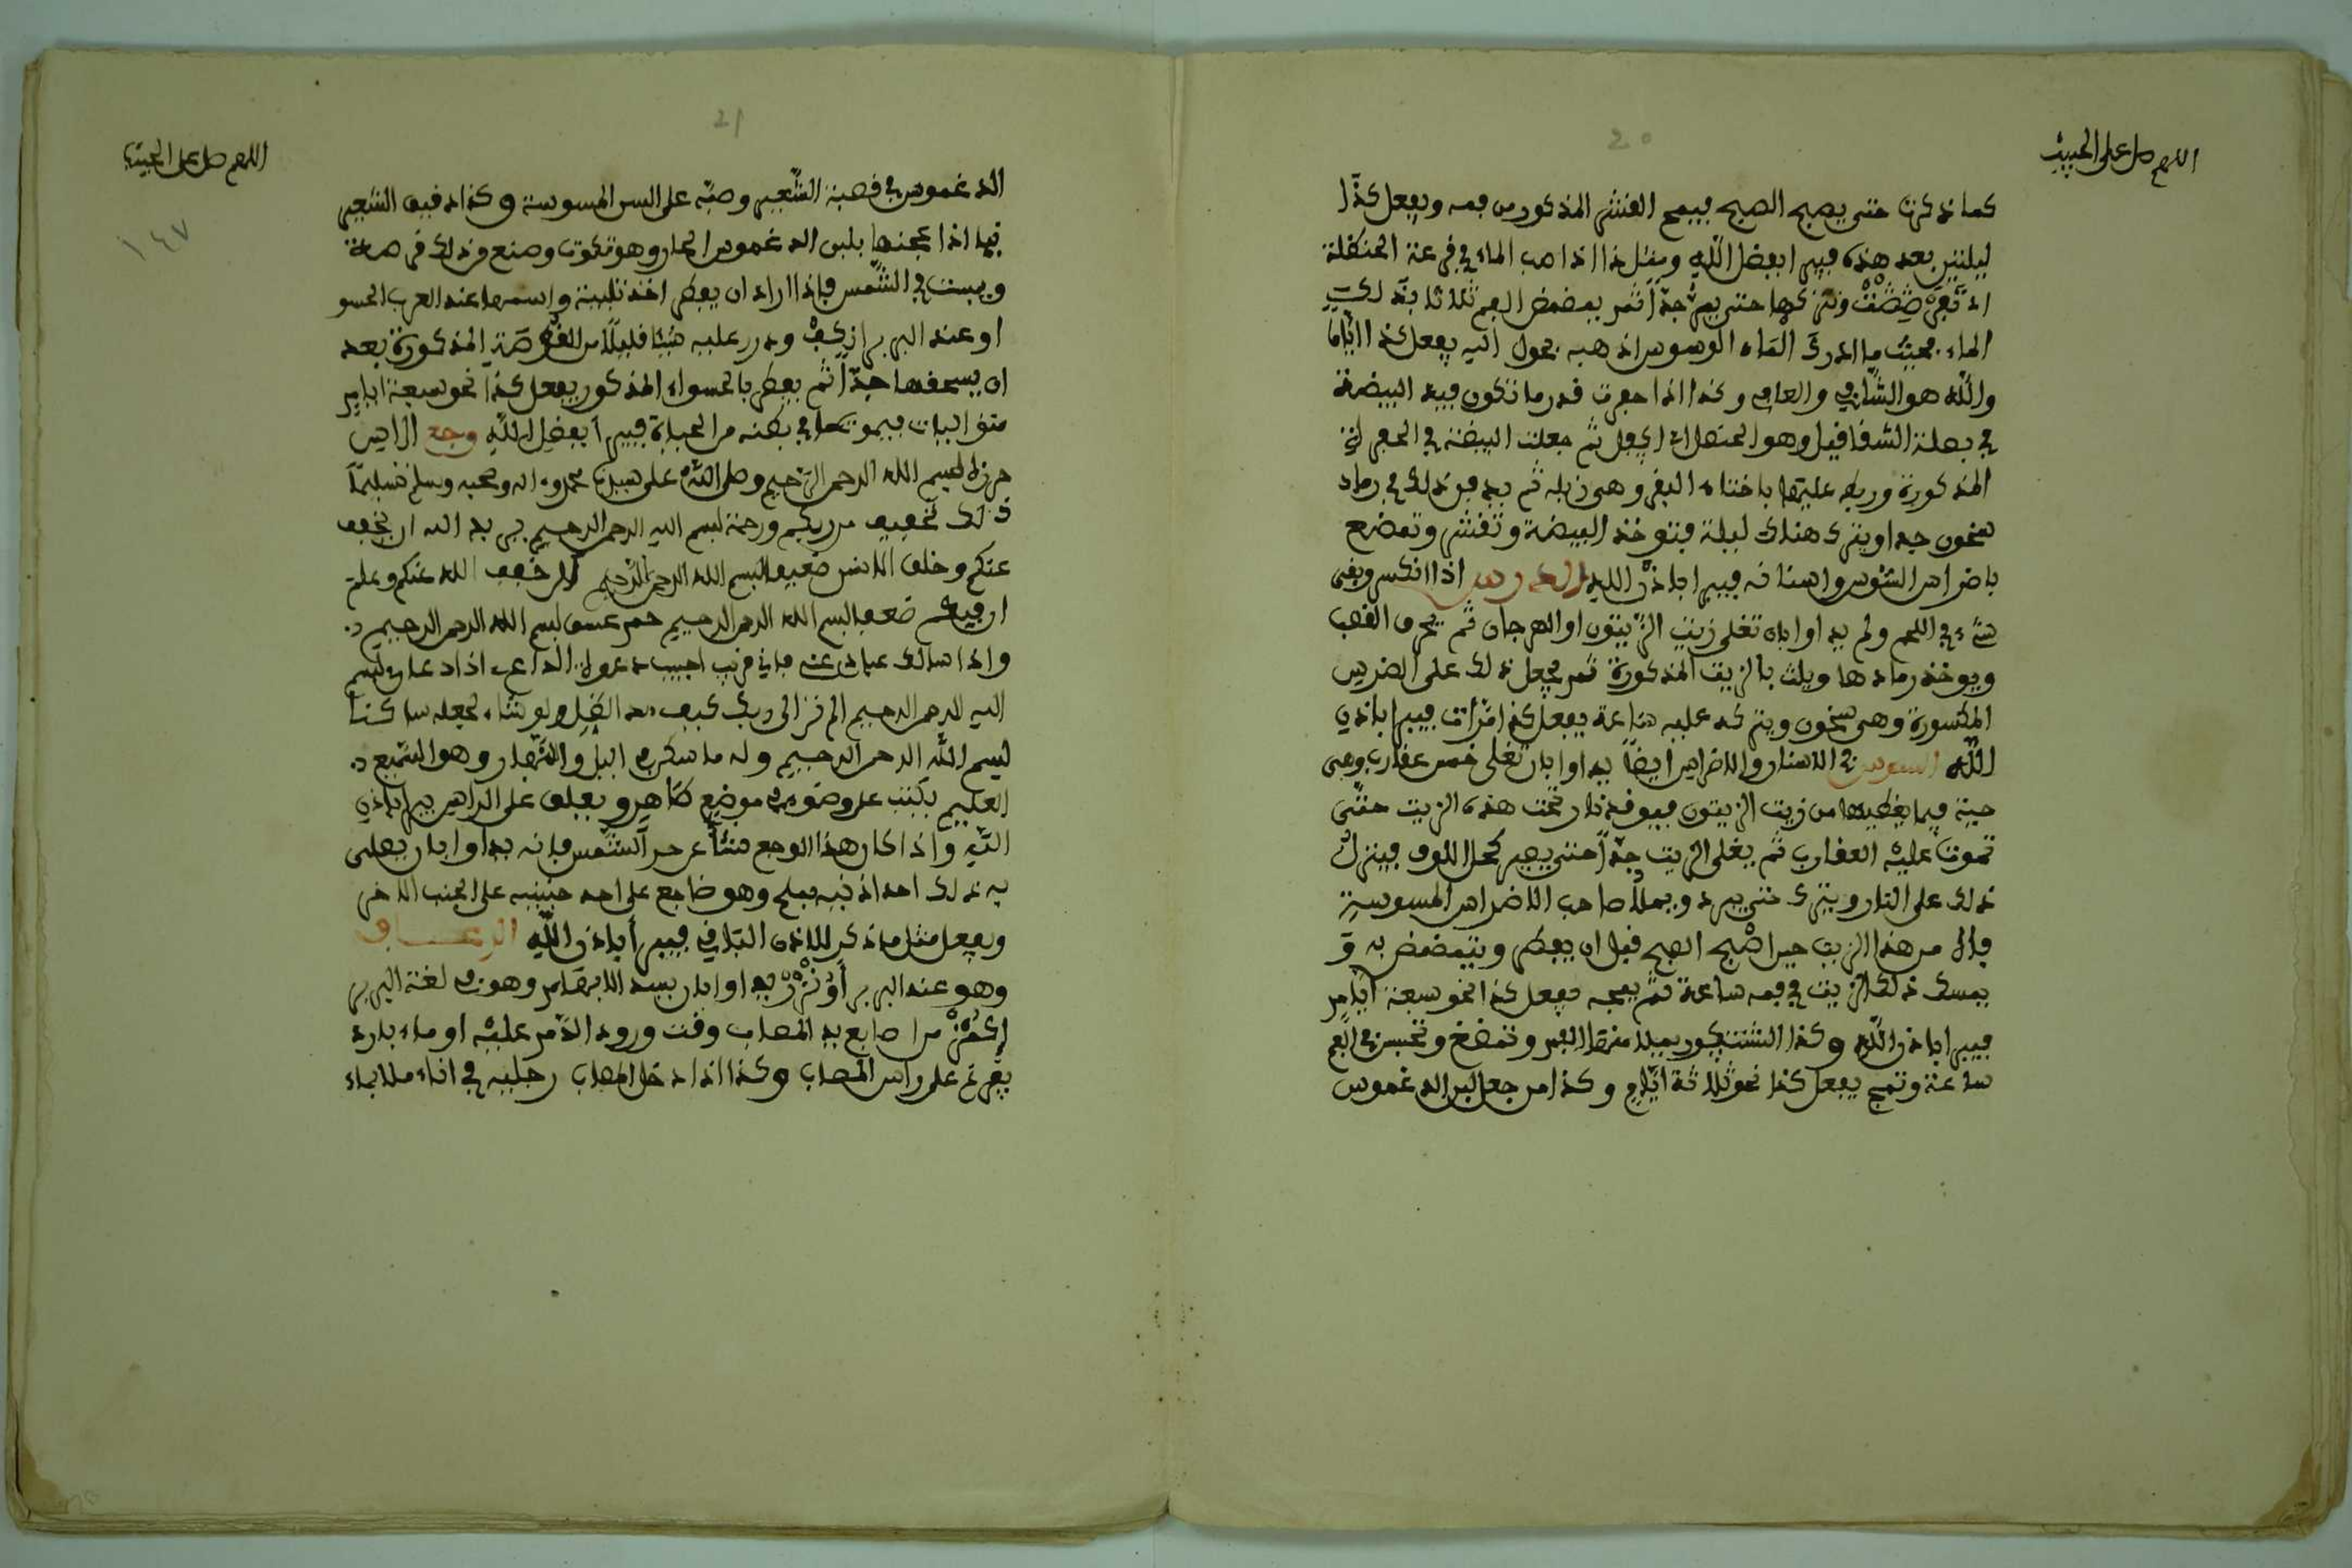 اللهم صل على الحبيب
20
كما ذكرت حتى يصبح الصبح فيمج القشر المذكور من فمه ويفعل كذا
بعد هذه فيبرا بفضل الله ومثل ذا اذا صب الماء في قرعة الحنظلة
وتتركها حتى جدا ثم يمضمض الفم ثلاثا بذلك
الماء فحيث ما ادرك الماء الوسوس اذهبه بحول الله يفعل كذا اياما
والله هو الشافي والعافي وكذا اذا حفرت قدر ما تكون فيه البيضة
في بصلة وهو ثم جعلت البيضة في
المذكورة وربط عليها باختاء البقر وهي زبله ثم يدفن ذلك في رماد
سخون جدا ويترك هناك ليلة فتوخذ البيضة وتقشر وتمضغ
باضراس السوس واسنانه فيبرا باذن الله الضرس اذا انكسر وبقى
شيء في اللحم ولم يداوا بان تغلى زيت الزيتون او الهرجان ثم يحرق القصب
ويوخذ رمادها ويلث بالزيت المذكورة ثم يجعل ذلك على الضرس
المكسورة وهي سخون ويتركه عليه ساعة يفعل كذا مرات فيبرا باذن
الله السوس في الاسنان والاضراس ايضا يداوا بان تغلى خمس عقارب وهى
حية فيما يغطيها من زيت الزيتون فيوقد نار تحت هذه الزيت حتى
تموت عليه العقارب ثم يغلى الزيت جدا حتى يصير فينزل
ذلك على النار ويترك حتى يبرد ويملأ صاحب الاضراس المسوسة
فاه من هذا الزيت حين اصبح الصبح قبل ان يفطر ويتمضمض به و
يمسك ذلك الزيت في فمه ساعة ثم يمجه يفعل كذا نحو سبعة ايام
فيبرا باذن الله وكذا يملا منها الفم وتمضغ وتحبس في الفم
ساعة وتمج يفعل كذا نحو ثلاثة ايام وكذا من جعل لبن الدغموس
اللهم صل على الحبيب
21
١٤٧
الدغموس في قصبة الشعير وصبه على السن المسوسة وكذا دقيق الشعير
اذا عجنها بلبن الدغموس الحار وهو تكوت وصنع من ذلك قرصة
ويبست في الشمس فاذا اراد ان يفطر اخذ تلبينة واسمها عند العرب الحسو
او عند البربر ازكيف وذرر عليه شيئا قليلا من القرصة المذكورة بعد
ان يسحقها جدا ثم يفطر بالحسواء المذكور يفعل كذا نحو سبعة ايام
في بطنه من الحياة فيبرا بفضل الله وجع الراس
بسم الله الرحمن الرحيم وصلى الله على سيدنا محمد واله وصحبه وسلم تسليما
ذلك تخفيف من ربكم ورحمة بسم الله الرحمن الرحيم يريد الله ان يخفف
عنكم وخلق الانسن ضعيفا بسم الله الرحمن الرحيم الن خفف الله عنكم وعلم
ان فيكم ضعفا بسم الله الرحمن الرحيم حمر عسق بسم الله الرحمن الرحيم
واذا سالك عبادي عني فاني قريب اجيب دعوة الداع اذا دعان بسم
الله الرحمن الرحيم الم تر الى ربك كيف مد الظل ولو شاء لجعله ساكنا
بسم الله الرحمن الرحيم وله ما سكن في اليل والنهار وهو السميع
العليم يكتب على وضوء في موضع طاهر ويعلق على الراس يبرا باذن
الله واذا كان هذا الوجع منشأ عن حر الشمس فانه يداوا بان يصلى
به ذلك احد اذنيه بملح وهو ضاجع على احد جنبيه على الجنب الاخر
ويفعل مثل ما ذكر للاذن الباقي فيبرا باذن الله الرعاف
وهو عند البربر أونزر يداوا بان يسد الابهام وهو في لغة البربر
من اصابع يد المصاب وقت ورود الدم عليه او ماء بارد
يفرغ على راس المصاب وكذا اذا دخل المصاب رجليه في اناء ملا بماء